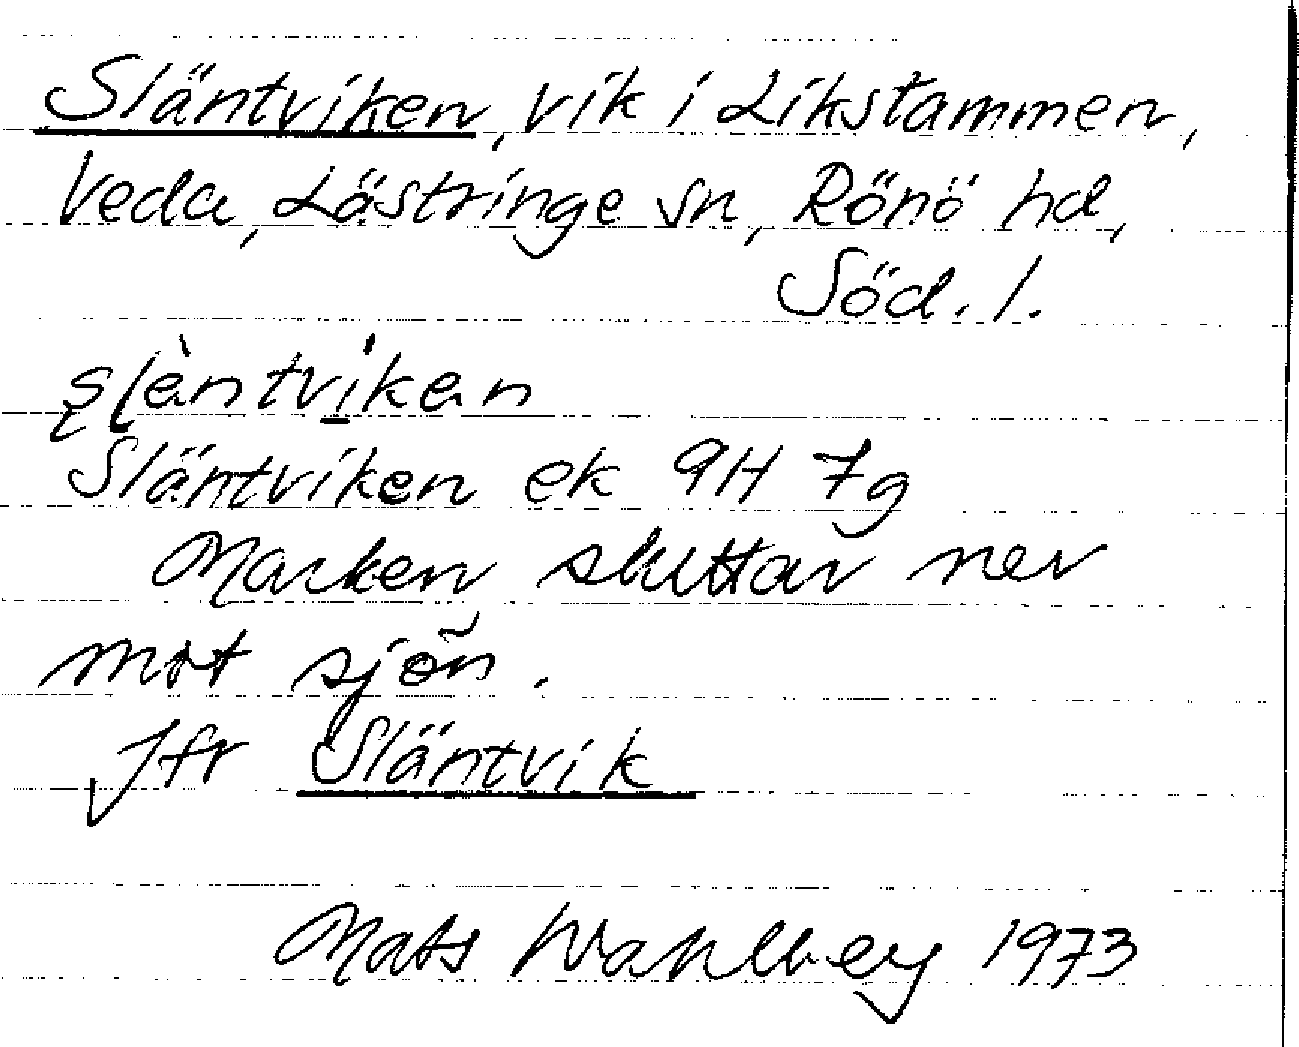 Släntviken, vik i Likstammen,
Veda, Lästringe sn, Rönö hd,
Söd. l.
slèntvikan
Släntviken ek 9H 7g
Marken sluttar ner
mot sjön.
Jfr Släntvik
Mats Wahlberg 1973